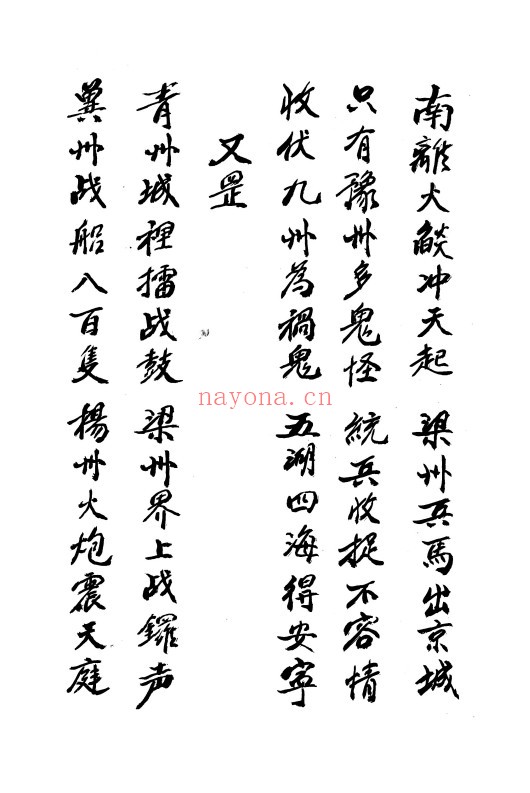 南離火燄冲天起 梁州兵馬出京城
只有豫州多鬼怪 統兵收捉不容情
收伏九州為禍鬼 五湖四海得安寧
又罡
青州城裡擂战鼓 梁州界上战鑼声
冀州战船八百隻 楊州火炮震天庭
nayona.cn